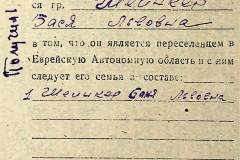 ся гр. Шейнкер
Вася Львовна
в том, что он является переселенцем в
Еврейскую Автономную область и с ним
следует его семья в составе:
1 Шейнкер Баня Львовна
Получил